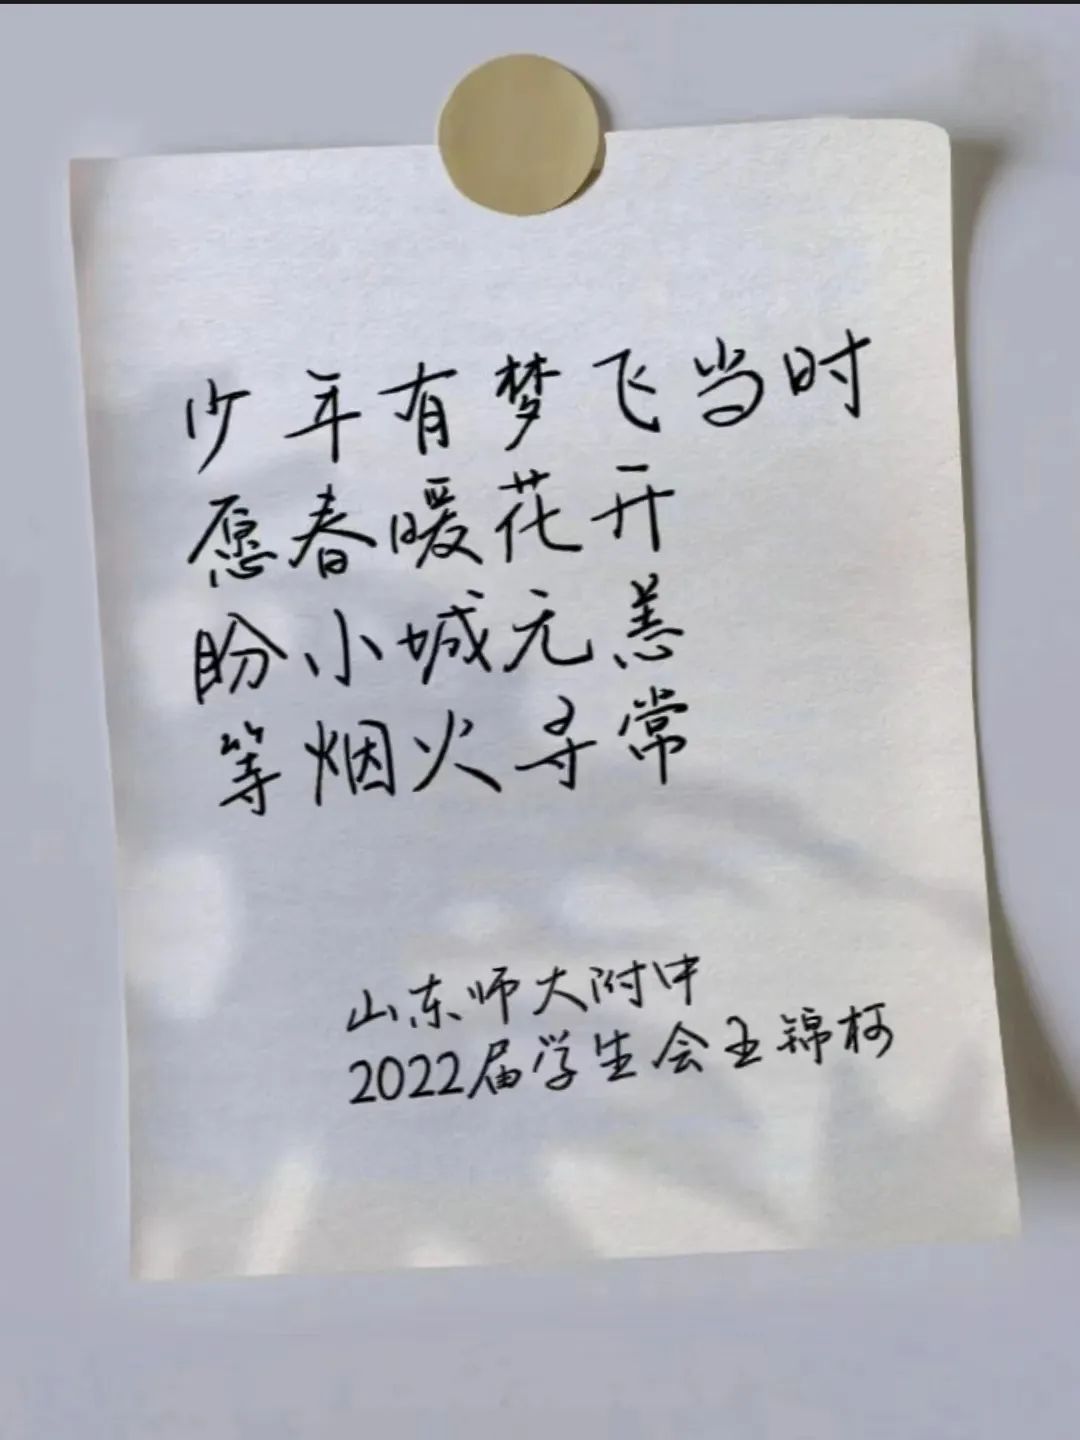 少年有梦飞当时
愿春暖花开
盼小城无恙
等烟火寻常
山东师大附中
2022届学生会王锦柯